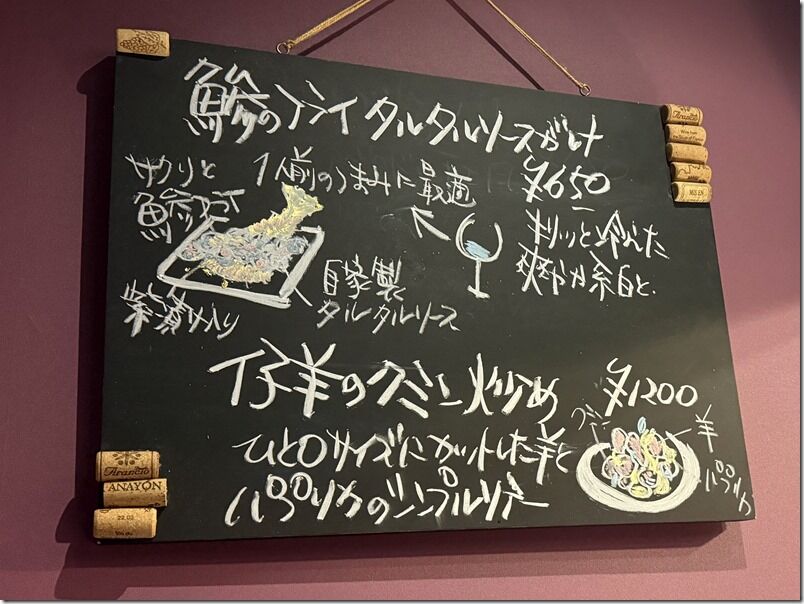 ANAYON
鯵のフライ タルタルソースがけ
¥650
サクリと
鯵フライ
1人前のつまみに最適
キリッと冷えた
爽やか系白と
自家製
タルタルソース
柴漬け入り
仔羊のクミン炒め ¥1200
ひと口サイズにカットした羊と
パプリカのシンプルソテー
羊
パプリカ
ANAYON